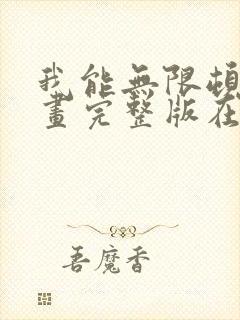 我能無限頓
畫完整版在
吾魔香